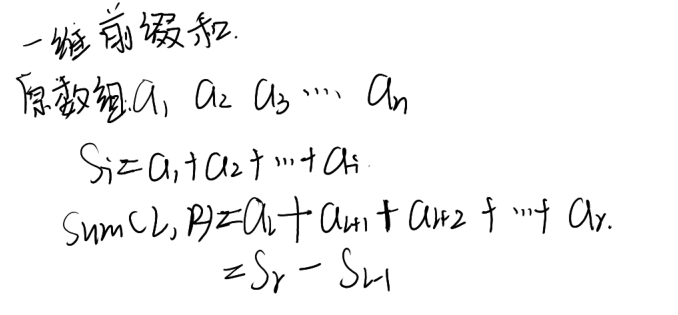 一维前缀和.
原数组:a₁ a₂ a₃ ... aₙ
Sᵢ=a₁+a₂+...+aᵢ.
Sum(L,R)=a_l+a_{l+1}+a_{l+2}+...+a_r.
=S_r-S_{L-1}